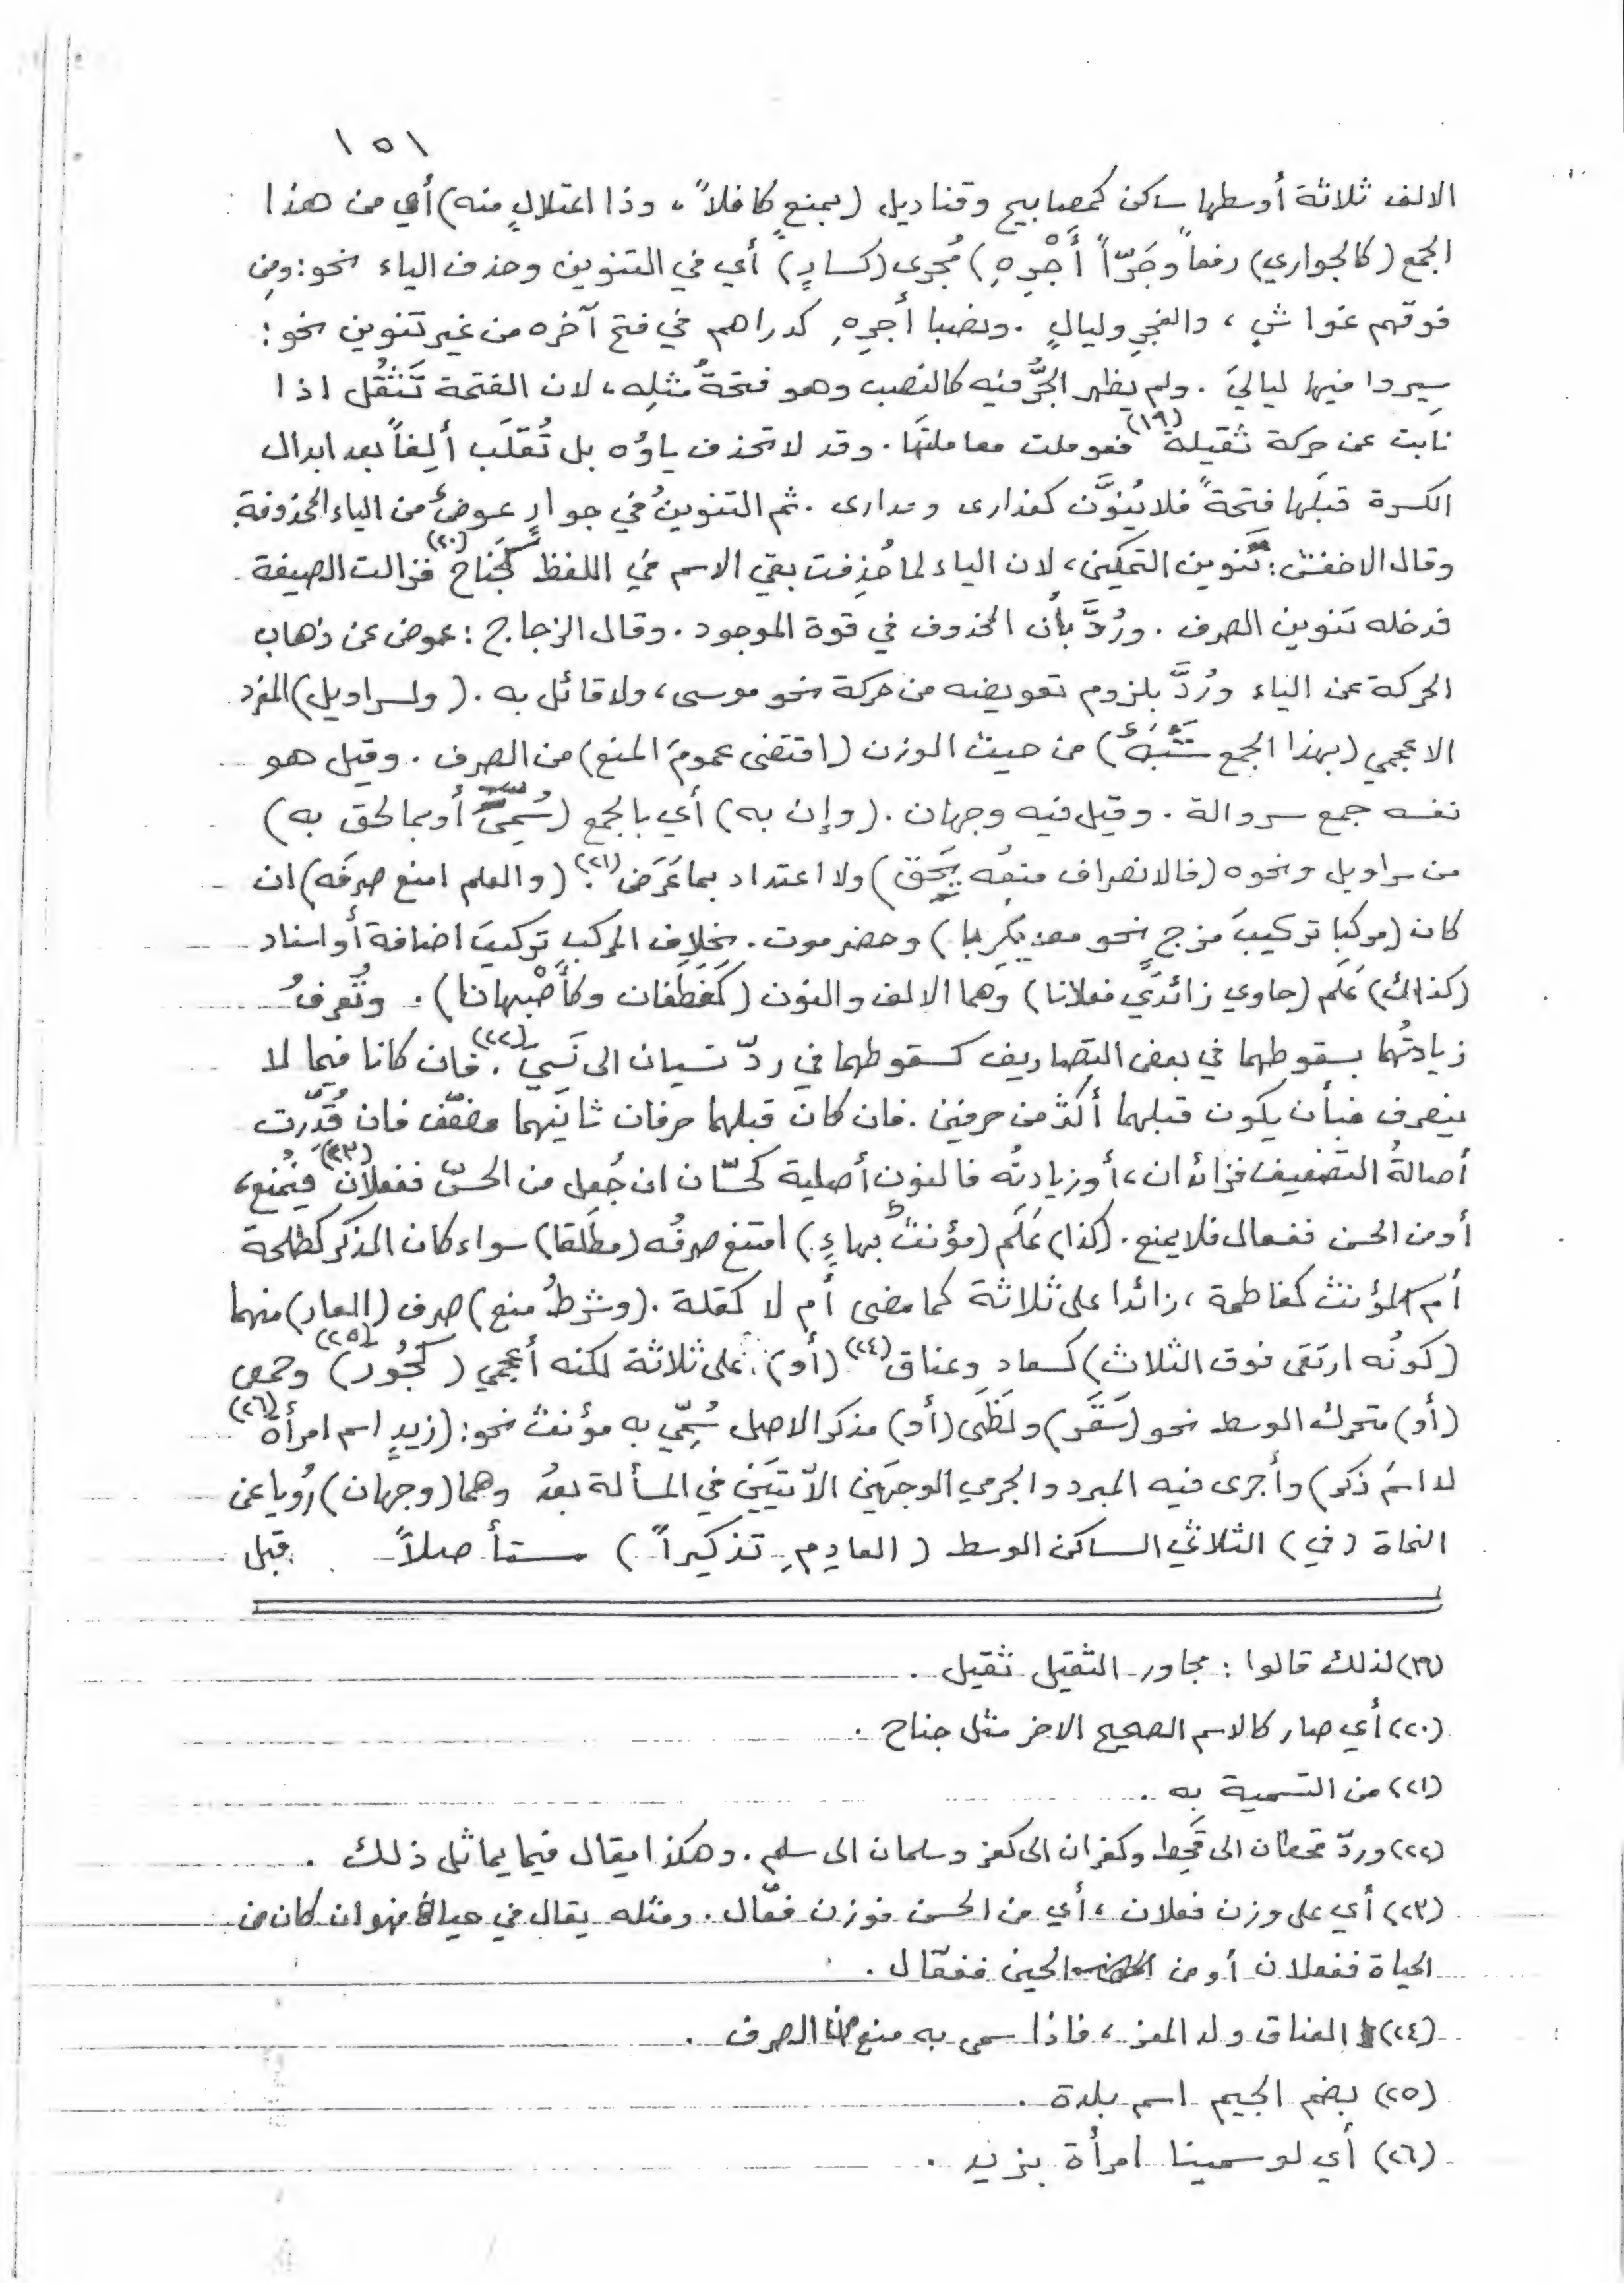 ١٥١
الالف ثلاثة أوسطها ساكن كمصابيح وقناديل (بمنعٍ كافلاً، وذا اعتلالٍ منه) أي من هذا
الجمع (كالجواري) رفعاً وجَرّاً أَجْرِهِ) مُجرى (كسارٍ) أي في التنوين وحذف الياء نحو: ومِن
فوقهم غواشٍ، والفجرِ وليالٍ. ونصبا أجرِهِ كدراهم في فتح آخره من غير تنوين نحو:
سِيروا فيها لياليَ. ولم يظهر الجرُّ فيه كالنصب وهو فتحةٌ مثلِه، لان الفتحة تَثقُل اذا
نابت عن حركة ثقيلة (١٩) فعوملت معاملتَها. وقد لا تحذف ياؤه بل تُقلَب ألِفاً بعد ابدال
الكسرة قبلَها فتحةً فلا يُنوَّن كعذارى ومدارى. ثم التنوينُ في جوارٍ عوضٌ من الياء المحذوفة
وقال الاخفش: تنوين التمكين، لان الياء لما حُذِفت بقي الاسم في اللفظ كجَناح (٢٠) فزالت الصيغة
فدخله تنوين الصرف. ورُدَّ بأن المحذوف في قوة الموجود. وقال الزجاج: عوض عن ذهاب
الحركة عن الياء ورُدَّ بلزوم تعويضه من حركة نحو موسى، ولا قائل به. (ولسراويل) المفرد
الاعجمي (بهذا الجمع شَبَهٌ) من حيث الوزن (اقتضى عمومَ المنع) من الصرف. وقيل هو
نفسه جمع سروالة. وقيل فيه وجهان. (وإن به) أي بالجمع (سُمِّيَ أو بما لحق به)
من سراويل ونحوه (فالانصراف منعُه يَحق) ولا اعتداد بما عَرَض (٢١). (والعلم امنع صرفَه) ان
كان (مركبا تركيبَ مزجٍ نحو معديكَرِبا) وحضرموت. بخلاف المركب تركيبَ اضافة أو اسناد
(كذاك) عَلَم (حاوي زائدَي فعلانا) وهما الالف والنون (كغَطَفان وكأَصْبهانا). وتُعرفُ
زيادتُهما بسقوطهما في بعض التصاريف كسقوطهما في ردّ نسيان الى نَسيَ (٢٢). فان كانا فيما لا
ينصرف فبأن يكون قبلهما أكثرُ من حرفين. فان كان قبلهما حرفان ثانيَهما مضعّف فان قُدّرت
أصالةُ التضعيف فزائدان، أو زيادتُه فالنون أصلية كحسّان ان جُعل من الحسّ ففعلان (٢٣) فيُمنع،
أو من الحسن ففعال فلا يمنع. (كذا) عَلَم (مؤنثٌ بهاءٍ) امتنع صرفُه (مطلَقا) سواء كان المذكر كطلحة
أم المؤنث كفاطمة، زائدا على ثلاثة كما مضى أم لا كقلة. (وشرطُ منع) صرف (العار) منهما
(كونُه ارتقى فوق الثلاث) كسعاد وعناق (٢٤) (أو) على ثلاثة لكنه أعجمي (كجُور (٢٥)) وحمص
(أو) متحرك الوسط نحو (سَقَر) ولَظَى (أو) مذكر الاصل سُمّي به مؤنث نحو: (زيدٍ اسم امرأة (٢٦)
لا اسمَ ذكر) وأجرى فيه المبرد والجرمي الوجهَين الآتيَين في المسألة بعدُ وهما (وجهان) رُويا عن
النحاة (في) الثلاثي الساكن الوسط (العادِمِ تذكيراً) متأصلاً قبل
(١٩) لذلك قالوا: مجاور الثقيل ثقيل.
(٢٠) أي صار كالاسم الصحيح الاخر مثل جناح.
(٢١) من التسمية به.
(٢٢) وردّ قحطان الى قَحِط وكفران الى كفر وسلمان الى سلم. وهكذا يقال فيما يماثل ذلك.
(٢٣) أي على وزن فعلان، أي من الحسن فوزن فعّال. ومثله يقال في حيان فهو ان كان من
الحياة ففعلان أو من الحين ففعّال.
(٢٤) العناق ولد المعز، فاذا سمى به منع من الصرف.
(٢٥) بضم الجيم اسم بلدة.
(٢٦) أي لو سمينا امرأة بزيد.